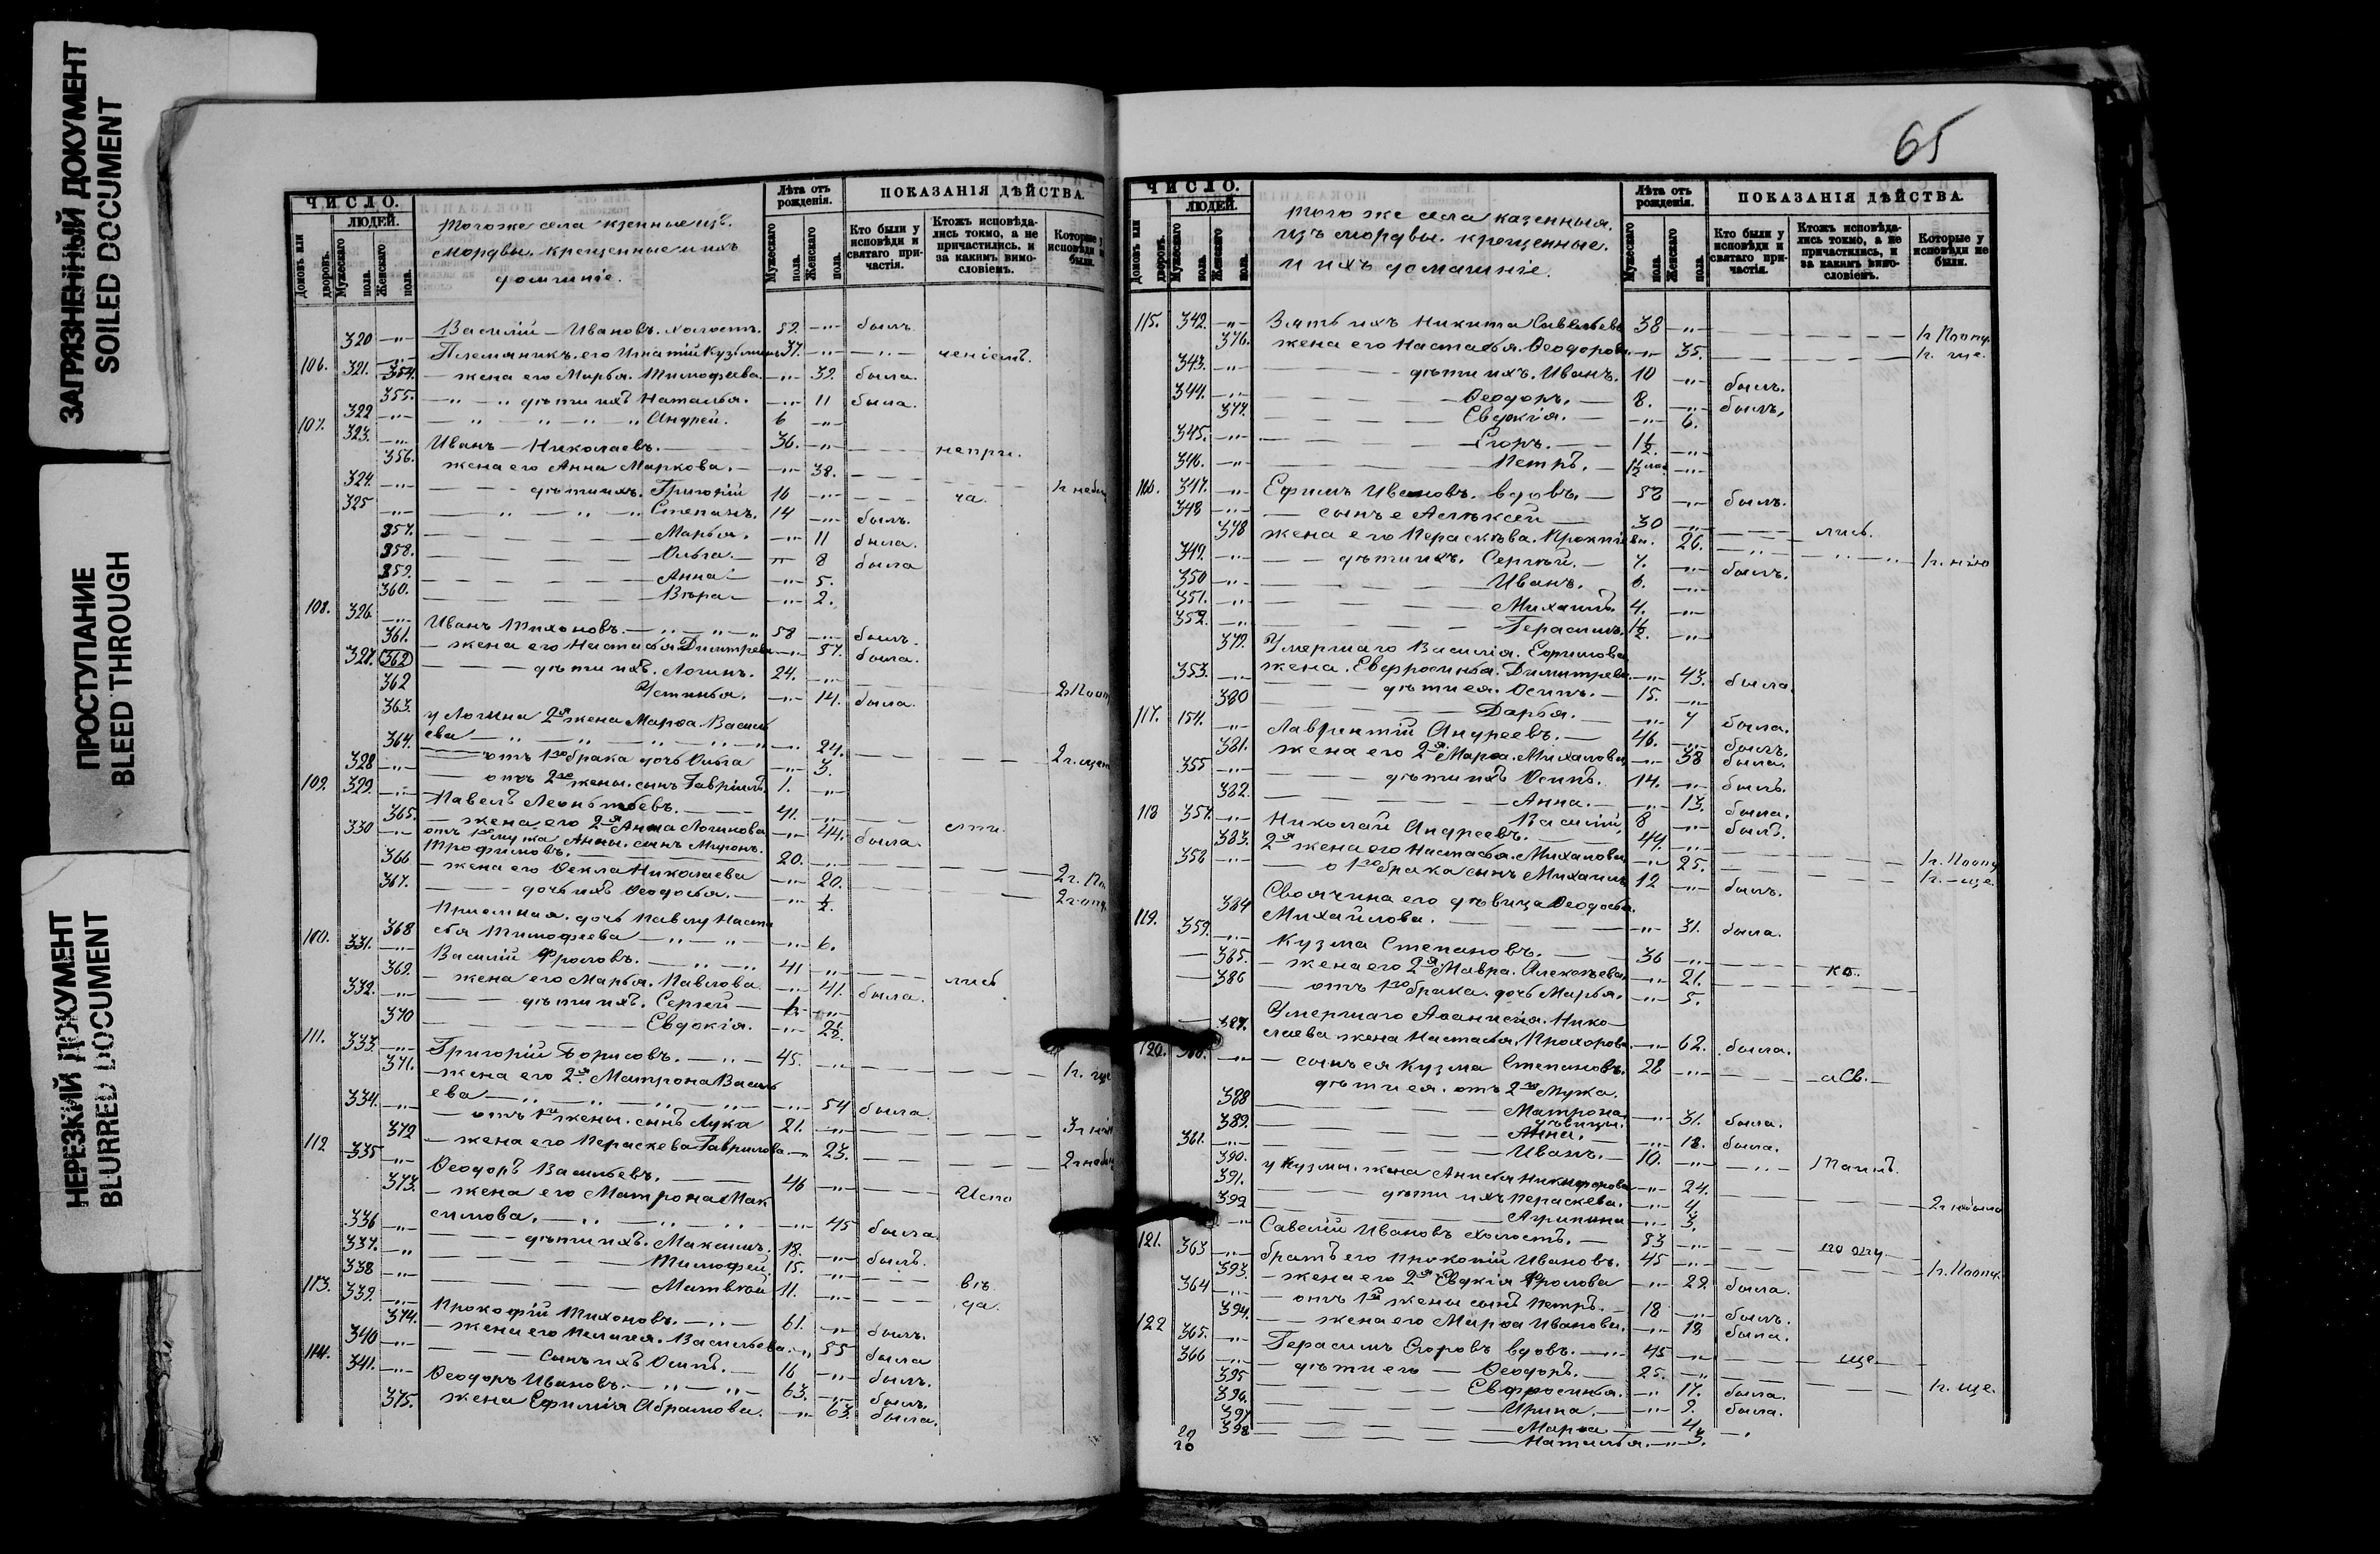 ЗАГРЯЗНЕННЫЙ ДОКУМЕНТ
SOILED DOCUMENT
ПРОСТУПАНИЕ
BLEED THROUGH
НЕРЕЗКИЙ ДОКУМЕНТ
BLURRED DOCUMENT
ЧИСЛО.
ЛЮДЕЙ.
Домовъ или дворовъ.
Мужескаго пола.
Женскаго пола.
Тогоже села кзенные изъ
мордвы крещенные и ихъ
домашніе.
Лѣта отъ рожденія.
Мужескаго пола.
Женскаго пола.
ПОКАЗАНІЯ ДѢЙСТВА.
Кто были у исповѣди и святаго причастія.
Ктожъ исповѣдались токмо, а не причастились, и за какимъ вимословіемъ.
Которые у исповѣди не были.
320 Василій Ивановъ. холостъ. 52. былъ
Племянникъ его Игнатій Кузьминъ 37. ченіемъ.
106. 321. 354. жена его Марья. Тимофеева. 39. была.
355. дѣти ихъ Наталья. 11 была.
322 Андрей. 6
107. 323. Иванъ Николаевъ. 36. непри.
356. жена его Анна Маркова. 38.
324. дѣти ихъ. Григорій 16 ча.
325 Степанъ. 14 былъ.
357. Марья. 11 была.
358. Ольга. 8 была
359. Анна 5.
360. Вѣра 2.
108. 326. Иванъ Тихоновъ. 58 былъ.
361. жена его Настасья Димитрева 57. была.
327. 362 дѣти ихъ. Логинъ. 24.
362 Устинья. 14. была.
363. у Логина 2я жена Марѳа. Василь
ева 24.
364. отъ 1го брака дочь Ольга 3.
328 отъ 2ой жены. сынъ Гавріилъ. 1.
109. 329. Павелъ Леонтьевъ. 41.
365. жена его 2я Анна Логинова 44. была.
330 отъ 1го мужа Анны. сынъ Миронъ.
Трофимовъ. 20.
366 жена его Ѳекла Николаева 20.
367. дочь ихъ Ѳеодосья. 1/2.
Приемная. дочь Павлу Наста
368 сья Тимофеева 6.
110. 331. Василій Фроловъ. 41
369. жена его Марья. Павлова. 41. была. лись
332. дѣти ихъ. Сергей
370 Евдокія. 2 1/2.
111. 333. Григорій Борисовъ. 45.
371. жена его 2я. Матрона Василь
ева 54 была.
334. отъ 1й жены. сынъ Лука 21.
372 жена его Пераскева Гаврилова 23.
112 335 Ѳеодоръ Васильевъ. 46 Испо
373. жена его Матрона Мак
симова. 45 была.
336 дѣти ихъ. Максимъ. 18. былъ.
337. Тимофей 15.
338 Матвѣй 11. вѣ
113. 339. Прокофій Тихоновъ. 61. былъ.
374. жена его Пелагея. Васильева 55 была
340 сынъ ихъ Осипъ. 16 былъ.
114. 341. Ѳеодоръ Ивановъ. 63. былъ.
375. жена Ефимія Абрамова. 63. была.
65
ЧИСЛО.
ЛЮДЕЙ.
Домовъ или дворовъ.
Мужескаго пола.
Женскаго пола.
того же села казенныя.
изъ мордвы. крещенные.
и ихъ домашніе.
Лѣта отъ рожденія.
Мужескаго пола.
Женскаго пола.
ПОКАЗАНІЯ ДѢЙСТВА.
Кто были у исповѣди и святаго причастія.
Ктожъ исповѣдались токмо, а не причастились, и за какимъ вимословіемъ.
Которые у исповѣди не были.
115. 342. Зять ихъ Никита Савельевъ 38
376. жена его Настасья. Ѳеодоровна 35.
343. дѣти ихъ. Иванъ. 10 былъ.
344. Ѳеодоръ. 8. былъ.
377. Евдокія. 6.
345. Егоръ. 1 1/2.
346. Петръ.
116. 347. Ефимъ Ивановъ. вдовъ. 52 былъ.
348 сынъ е Алѣксѣй 30 лись.
378 жена его Пераскѣва. 26.
349. дѣти ихъ. Сергѣй. 7. былъ.
350 Иванъ. 6.
351. Михаилъ. 4.
352. Герасимъ. 1 1/2.
379. Умершаго Василія. Ефимова
жена. Евфросинья. Димитрева. 43. была.
353. дѣти ея. Осипъ. 15.
380 Дарья. 7 была.
117. 154. Лаврентій Андреевъ. 46. былъ.
381. жена его 2я. Марѳа. Михалова 38 была.
355 дѣти ихъ Осипъ. 14. былъ.
382. Анна. 13. была.
Василій 8 былъ.
118 357. Николай Андреевъ. 44.
383. 2я жена его Настасья. Михалова 25.
358 о 1го брака сынъ Михаилъ 12 былъ.
Своячина его дѣвица Ѳеодосья.
384 Михайлова. 31. была.
119. 359. Кузма Степановъ. 36 ко.
385. жена его 2я Мавра. Алексѣева. 21.
386 отъ 1го брака. дочь Марья. 5.
Умершаго Аѳанасія. Нико
387. лаева жена Настасья. Прохорова. 62. была.
120. сынъ ея Кузма Степановъ. 28
дѣти ея. отъ 2го Мужа.
388 Матрона. 31. была.
дѣвицы.
389. Анна. 18. была.
361. Иванъ. 10.
390. у Кузмы. жена Анисья Никифорова 24.
391. дѣти ихъ Пераскева. 4.
392 Агрипина 3.
121. Савелій Ивановъ холостъ. 53
363 братъ его Прокопій Ивановъ. 45
393. жена его 2я Евдкія Фролова 29 была.
364 отъ 1й жены сынъ Петръ. 18 былъ.
394. жена его Марѳа Иванова. 18 была.
122 365. Герасимъ Егоровъ вдовъ. 45 ще.
366 дѣти его Ѳеодоръ. 25. 1г. ще.
395 Евфросинья. 17. была.
396. Ирина. 9. была.
397 Марѳа 4.
398 Наталья. 3.